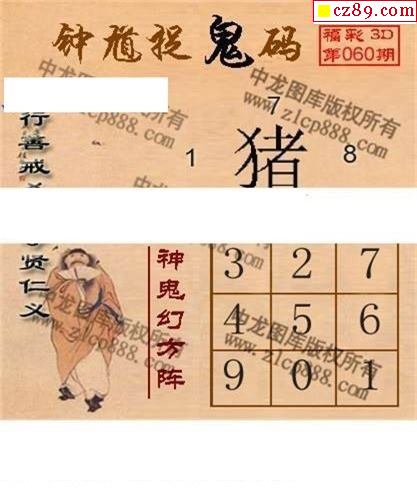 cz89.com
钟馗捉鬼码
福彩3D
第060期
中龙图库版权所有
www.zlcp888.com
7
1 猪 8
行善戒
贤仁义
神鬼幻方阵
3 2 7
4 5 6
9 0 1
中龙图库版权所有
www.zlcp888.com